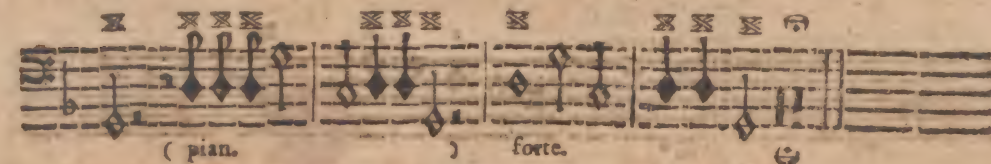 ( pian. ) forte.